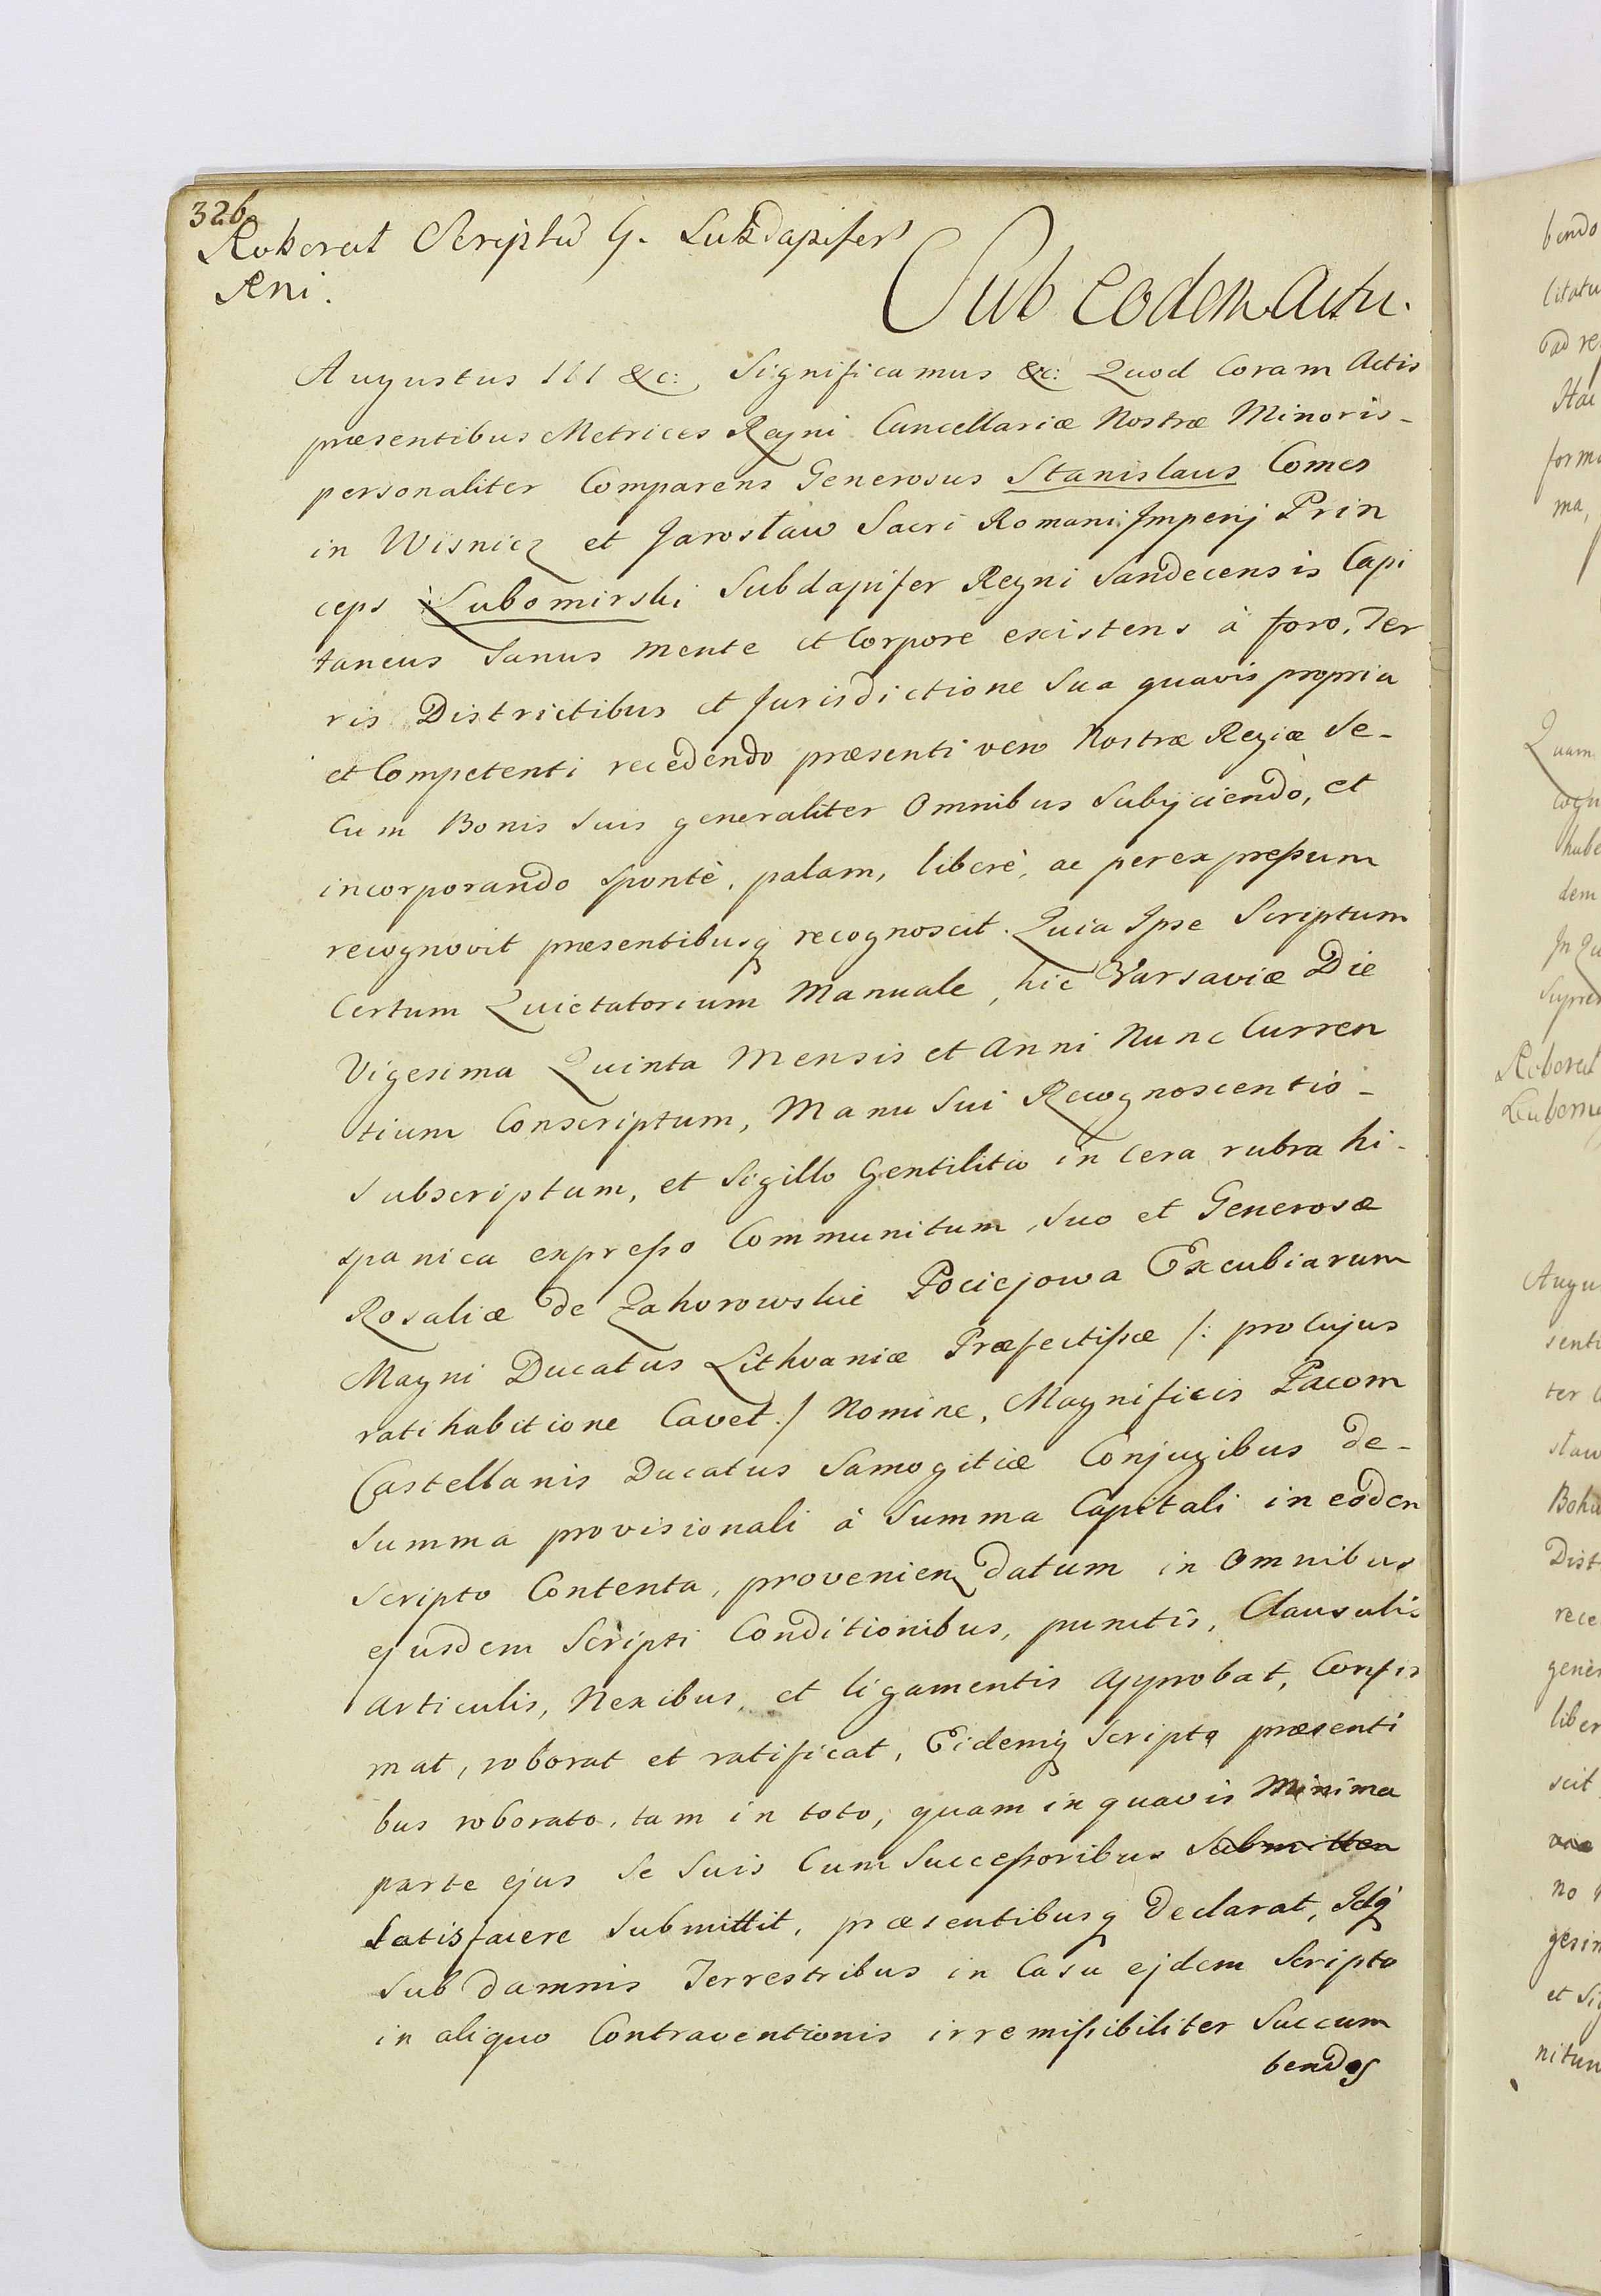 326
Roborat Scriptu G. Subdapifer
Rni.
Sub eodem Actu.
Augustus III &c: Significamus &c: Quod Coram Actis
præsentibus Metrices Regni Cancellariæ Nostræ Minoris-
personaliter Comparens Generosus Stanislaus Comes
in Wisnicz et Jarosław Sacri Romani Imperij Prin
ceps Lubomirski Subdapifer Regni Sandecensis Capi
taneus Sanus mente et Corpore existens à foro, Ter
ris Districtibus et Jurisdictione Sua quavis propria
et Competenti recedendo præsenti vero Nostræ Regiæ Se-
Cum Bonis Suis generaliter Omnibus Subijciendò, et
incorporando Spontè, palam, liberè, ac per expressum
recognovit præsentibusq recognoscit. Quia Ipse Scriptum
Certum Quietatorium Manuale, hic Varsaviæ Die
Vigesima Quinta Mensis et Anni Nunc Curren
tium Conscriptum, Manu Sui Recognoscentis-
Subscriptum, et Sigillo Gentilitio in Cera rubra hi-
spanica expresso Communitum, Suo et Generosæ
Rosaliæ de Zahorowskie Pociejowa Excubiarum
Magni Ducatus Lithvaniæ Præfectissæ /: pro Cujus
ratihabitione Cavet./ Nomine, Magnificis Pacom
Castellanis Ducatus Samogitiæ Conjugibus de-
Summa provisionali à Summa Capitali in eodem
Scripto Contenta, provenien datum in Omnibus
ejusdem Scripti Conditionibus, punctis, Clausulis
Articulis, Nexibus, et ligamentis Approbat, Confir
mat, roborat et ratificat, Eidemq Scripto præsenti
bus roborato, tam in toto, quam in quavis Minima
parte ejus Se Suis Cum Successoribus Submitten
Satisfacere Submittit, præsentibusq Declarat, Idq
Sub damnis Terrestribus in Casu ejdem Scripto
in aliquo Contraventionis irremissibiliter Succum
bendos
bendo
citatu
ad re
Hac
forma
ma,
Quam
cogn
habe
dem
In Qu
Supre
Roborat
Augu
senti
ter C
sław
Bohu
Dist
rece
gener
liber
scit
no
gesim
et Si
nitum